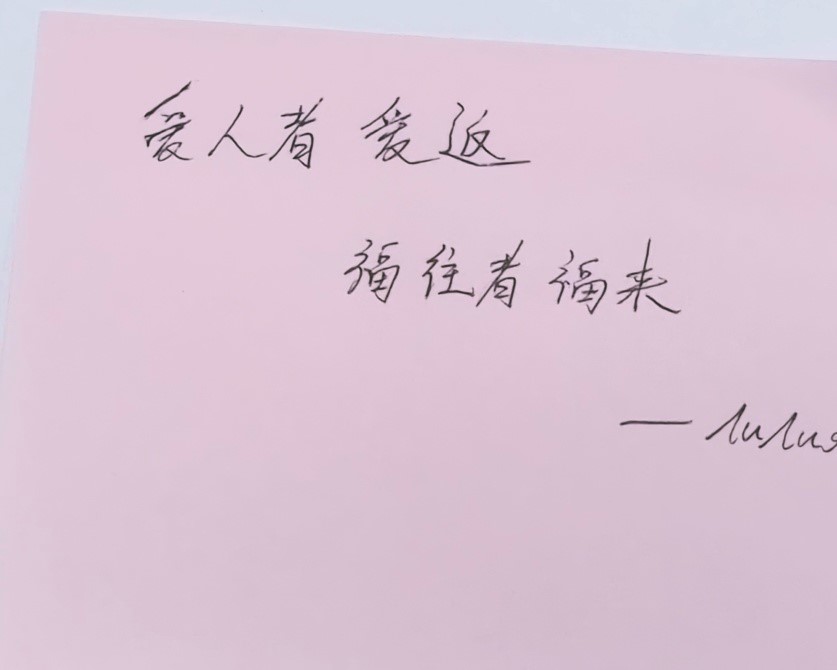 爱人者 爱返
福往者 福来
— lulu